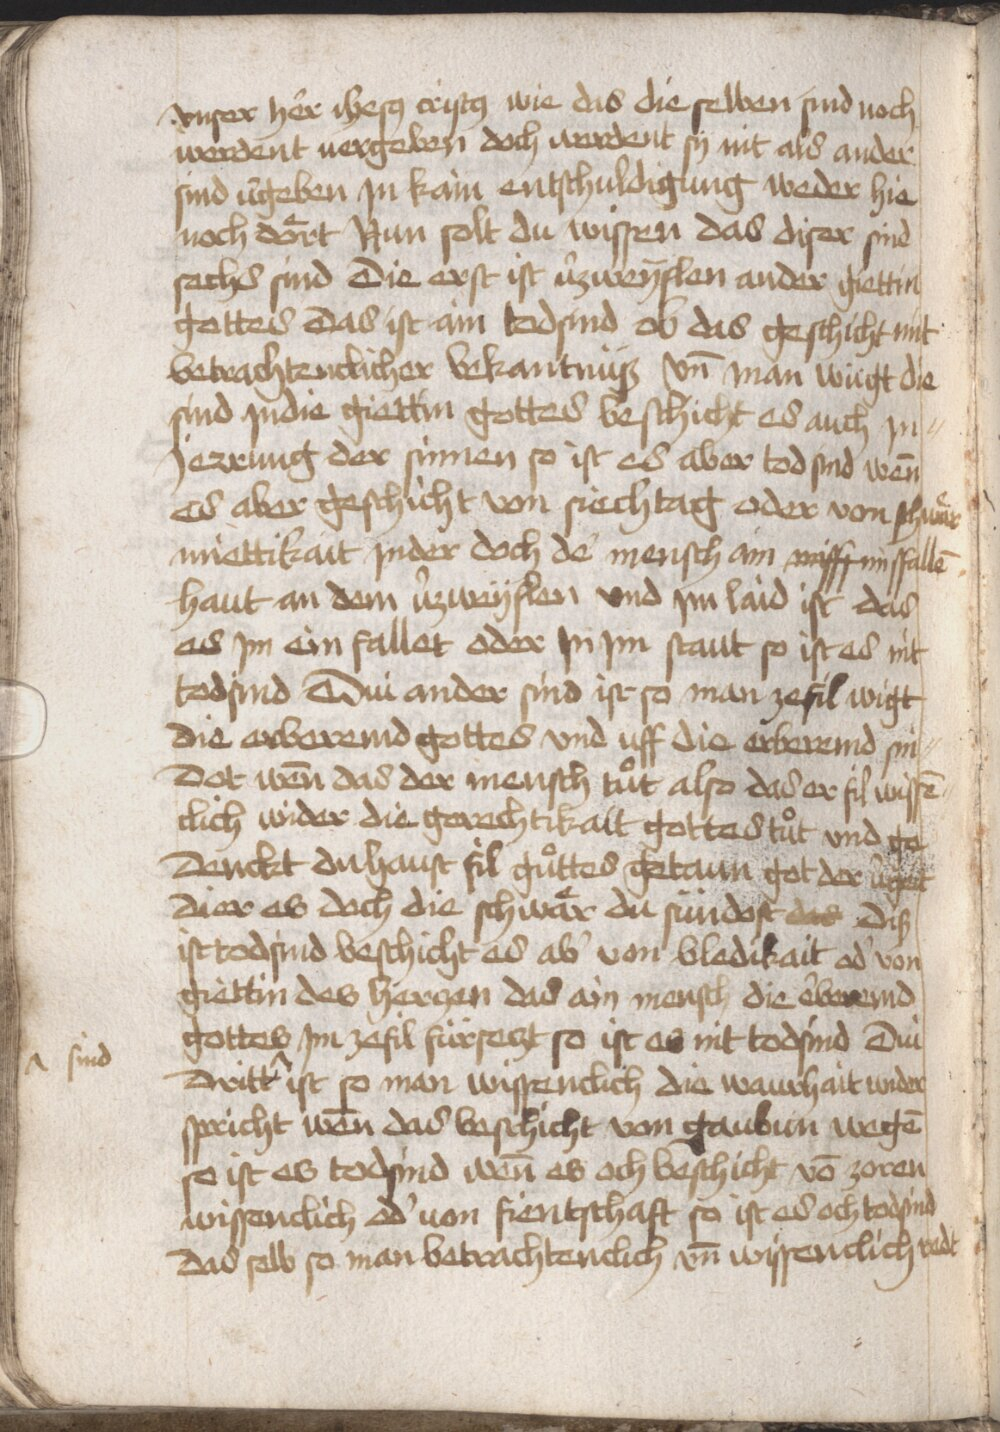 unser her ihesus cristus wie das die selben sind noch
werdent uergeben doch werdent sy nit als ander
sind v̄geben In kain entschuldigung weder hie
noch doͤrt Nun solt du wissen das diser sind
sechs sind Die erst ist v̄zwyflen an der giettin
gottes Das ist ain todsind ob das geschicht mit
betrachtenclicher bekantnüß vn̄ man wigt die
sind In die giettin gottes beschicht es auch In=
Jerrung der sinnen so ist es aber tod sind wen̄
es aber geschicht von siechtag oder von schwaͤr
miettikait Inder doch de' mensch ain missfallē
haut an dem v̄zwyflen und im laid ist das
es Im ein fallet oder In Im staut so ist es nit
todsind Dui ander sind ist so man zefil wigt
die erbermd gottes vnd uff die erbermd sin=
Dot wen̄ das der mensch tuͦt also das er fil wissē=
clich wider die gerechtikait gottes tuͦt vnd ge
Denckt du haust fil guͦttes getaun got der v̄geit
Dier es doch die schwaͤr du sündost Diß
ist todsind beschicht es ab' von bledikait od' von
giettin des herczen das ain mensch die ebermd
gottes Im zefil fürseczt so ist es nit todsind Dui
Dritt ^ ist so man wissenclich die waurhait wider
^ sind
spricht wen̄ das beschicht von gaubun wegē
so ist es todsind wen̄ es och beschicht vō zoren
wissenclich od' uon fientschaft so ist es och todsind
Das selb so man betrachtenclich vn̄ wissenclich redt